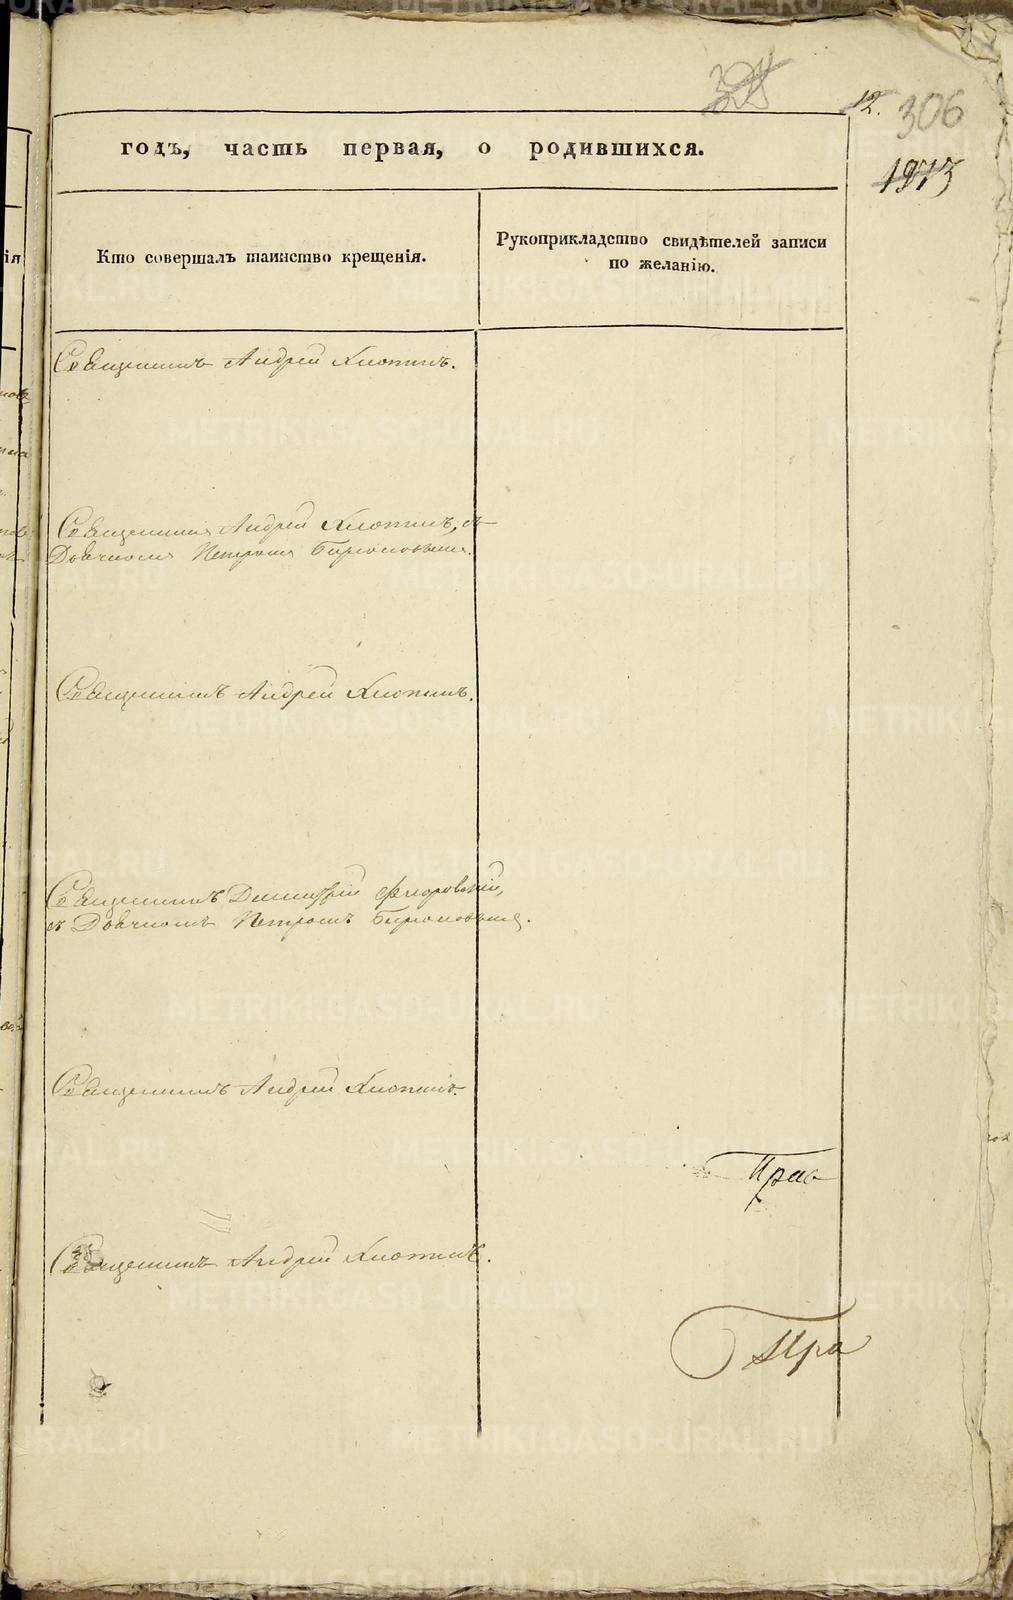 12. 306
1973
годъ, часть первая, о родившихся.
Кто совершалъ таинство крещенія.
Рукоприкладство свидѣтелей записи
по желанію.
Священникъ Андрей Хлопинъ.
Священникъ Андрей Хлопинъ, съ
Дьячкомъ Петромъ Бирюковымъ.
Священникъ Андрей Хлопинъ.
Священникъ Димитрій Флоровскій,
съ Дьячкомъ Петромъ Бирюковымъ.
Священникъ Андрей Хлопинъ.
Священникъ Андрей Хлопинъ.
METRIKI.GASO-URAL.RU